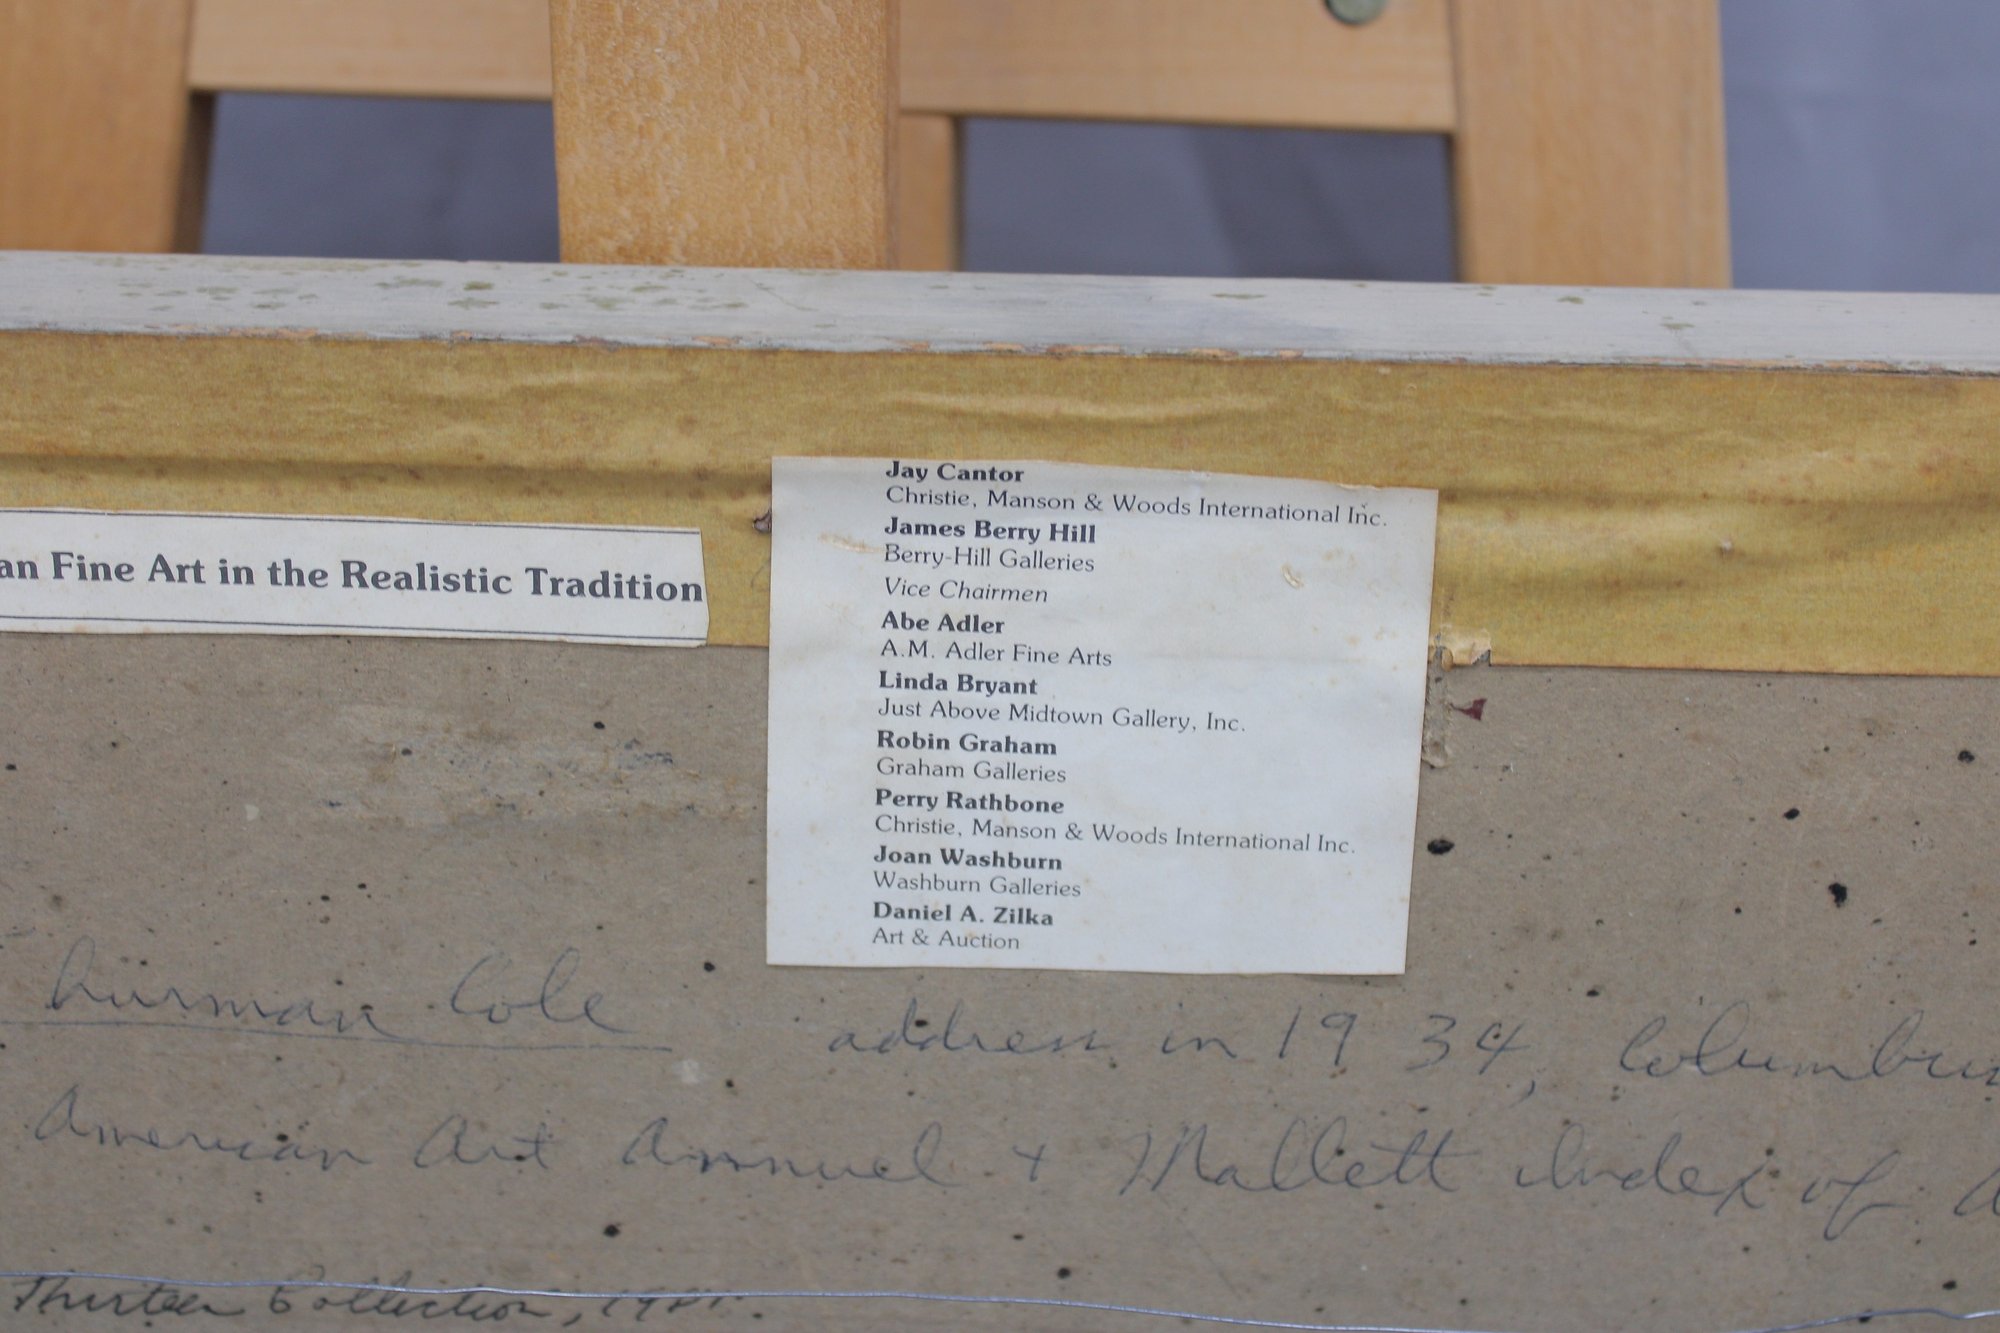 an Fine Art in the Realistic Tradition
Jay Cantor
Christie, Manson & Woods International Inc.
James Berry Hill
Berry-Hill Galleries
Vice Chairmen
Abe Adler
A.M. Adler Fine Arts
Linda Bryant
Just Above Midtown Gallery, Inc.
Robin Graham
Graham Galleries
Perry Rathbone
Christie, Manson & Woods International Inc.
Joan Washburn
Washburn Galleries
Daniel A. Zilka
Art & Auction
hurman Cole address in 1934, Columbus
American Art Annuel + Mallett Index of A
Thirteen Collection,